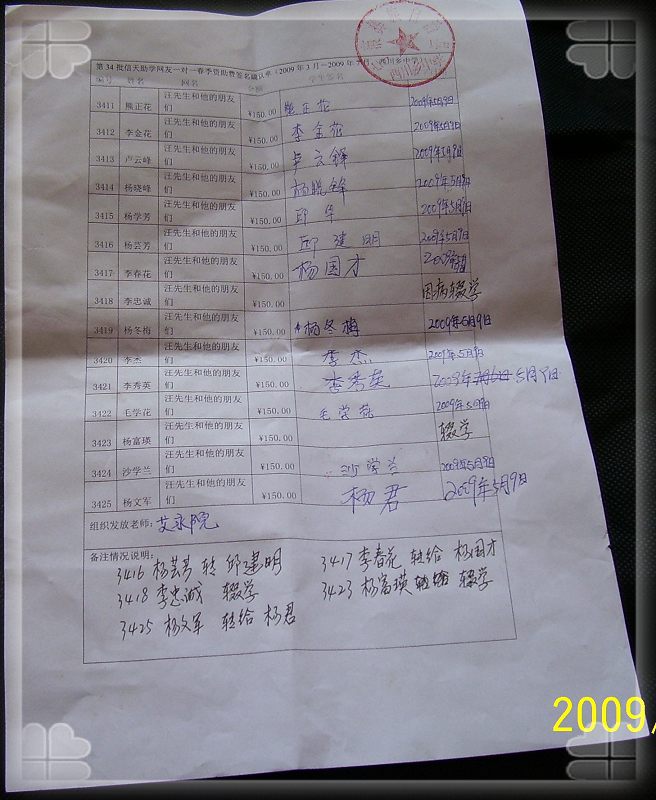 第34批信天助学网友一对一春季资助费签名确认单（2009年3月－2009年7月 西川乡中学
编号 姓名 网名 金额 学生签名
3411 熊正花 汪先生和他的朋友们 ¥150.00 熊正花 2009年5月9日
3412 李金花 汪先生和他的朋友们 ¥150.00 李金花 2009年5月9日
3413 卢云峰 汪先生和他的朋友们 ¥150.00 卢云锋 2009年5月9日
3414 杨晓峰 汪先生和他的朋友们 ¥150.00 杨晓锋 2009年5月9日
3415 杨学芳 汪先生和他的朋友们 ¥150.00 邱华 2009年5月9日
3416 杨芸芳 汪先生和他的朋友们 ¥150.00 邱建明 2009年5月9日
3417 李春花 汪先生和他的朋友们 ¥150.00 杨国才 2009年
3418 李忠诚 汪先生和他的朋友们 ¥150.00 因病辍学
3419 杨冬梅 汪先生和他的朋友们 ¥150.00 杨冬梅 2009年5月9日
3420 李杰 汪先生和他的朋友们 ¥150.00 李杰 2009年5月9日
3421 李秀英 汪先生和他的朋友们 ¥150.00 李秀英 2009年 5月9日
3422 毛学花 汪先生和他的朋友们 ¥150.00 毛学花 2009年5月9日
3423 杨富瑛 汪先生和他的朋友们 ¥150.00 辍学
3424 沙学兰 汪先生和他的朋友们 ¥150.00 沙学兰 2009年5月9日
3425 杨文军 汪先生和他的朋友们 ¥150.00 杨君 2009年5月9日
组织发放老师：艾永院
备注情况说明：
3416 杨芸芳 转 邱建明 3417 李春花 转给 杨国才
3418 李忠诚 辍学 3423 杨富瑛 辍学
3425 杨文军 转给 杨君
2009